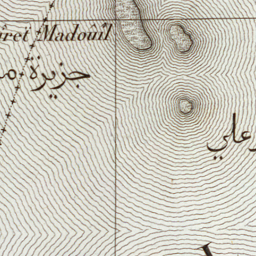 ret Madouîl
جزيرة
علي